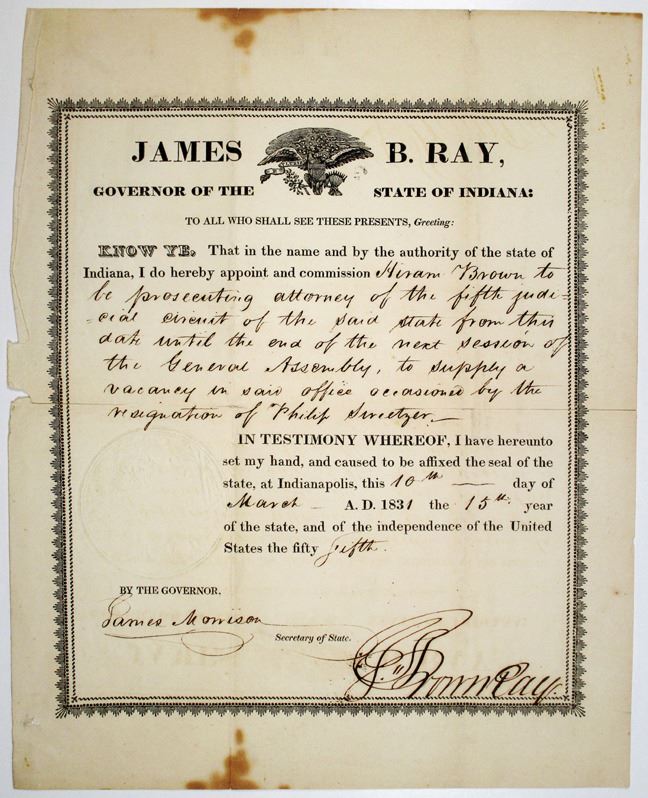 JAMES B. RAY,
GOVERNOR OF THE STATE OF INDIANA:
TO ALL WHO SHALL SEE THESE PRESENTS, Greeting:
KNOW YE, That in the name and by the authority of the state of
Indiana, I do hereby appoint and commission Hiram Brown to
be prosecuting attorney of the fifth judi-
-cial circuit of the said state from this
date until the end of the next session of
the General Assembly, to supply a
vacancy in said office occasioned by the
resignation of Philip Sweetzer.
IN TESTIMONY WHEREOF, I have hereunto
set my hand, and caused to be affixed the seal of the
state, at Indianapolis, this 10th day of
March A. D. 1831 the 15th year
of the state, and of the independence of the United
States the fifty fifth.
BY THE GOVERNOR,
James Morrison
Secretary of State.
J. Brown Ray.